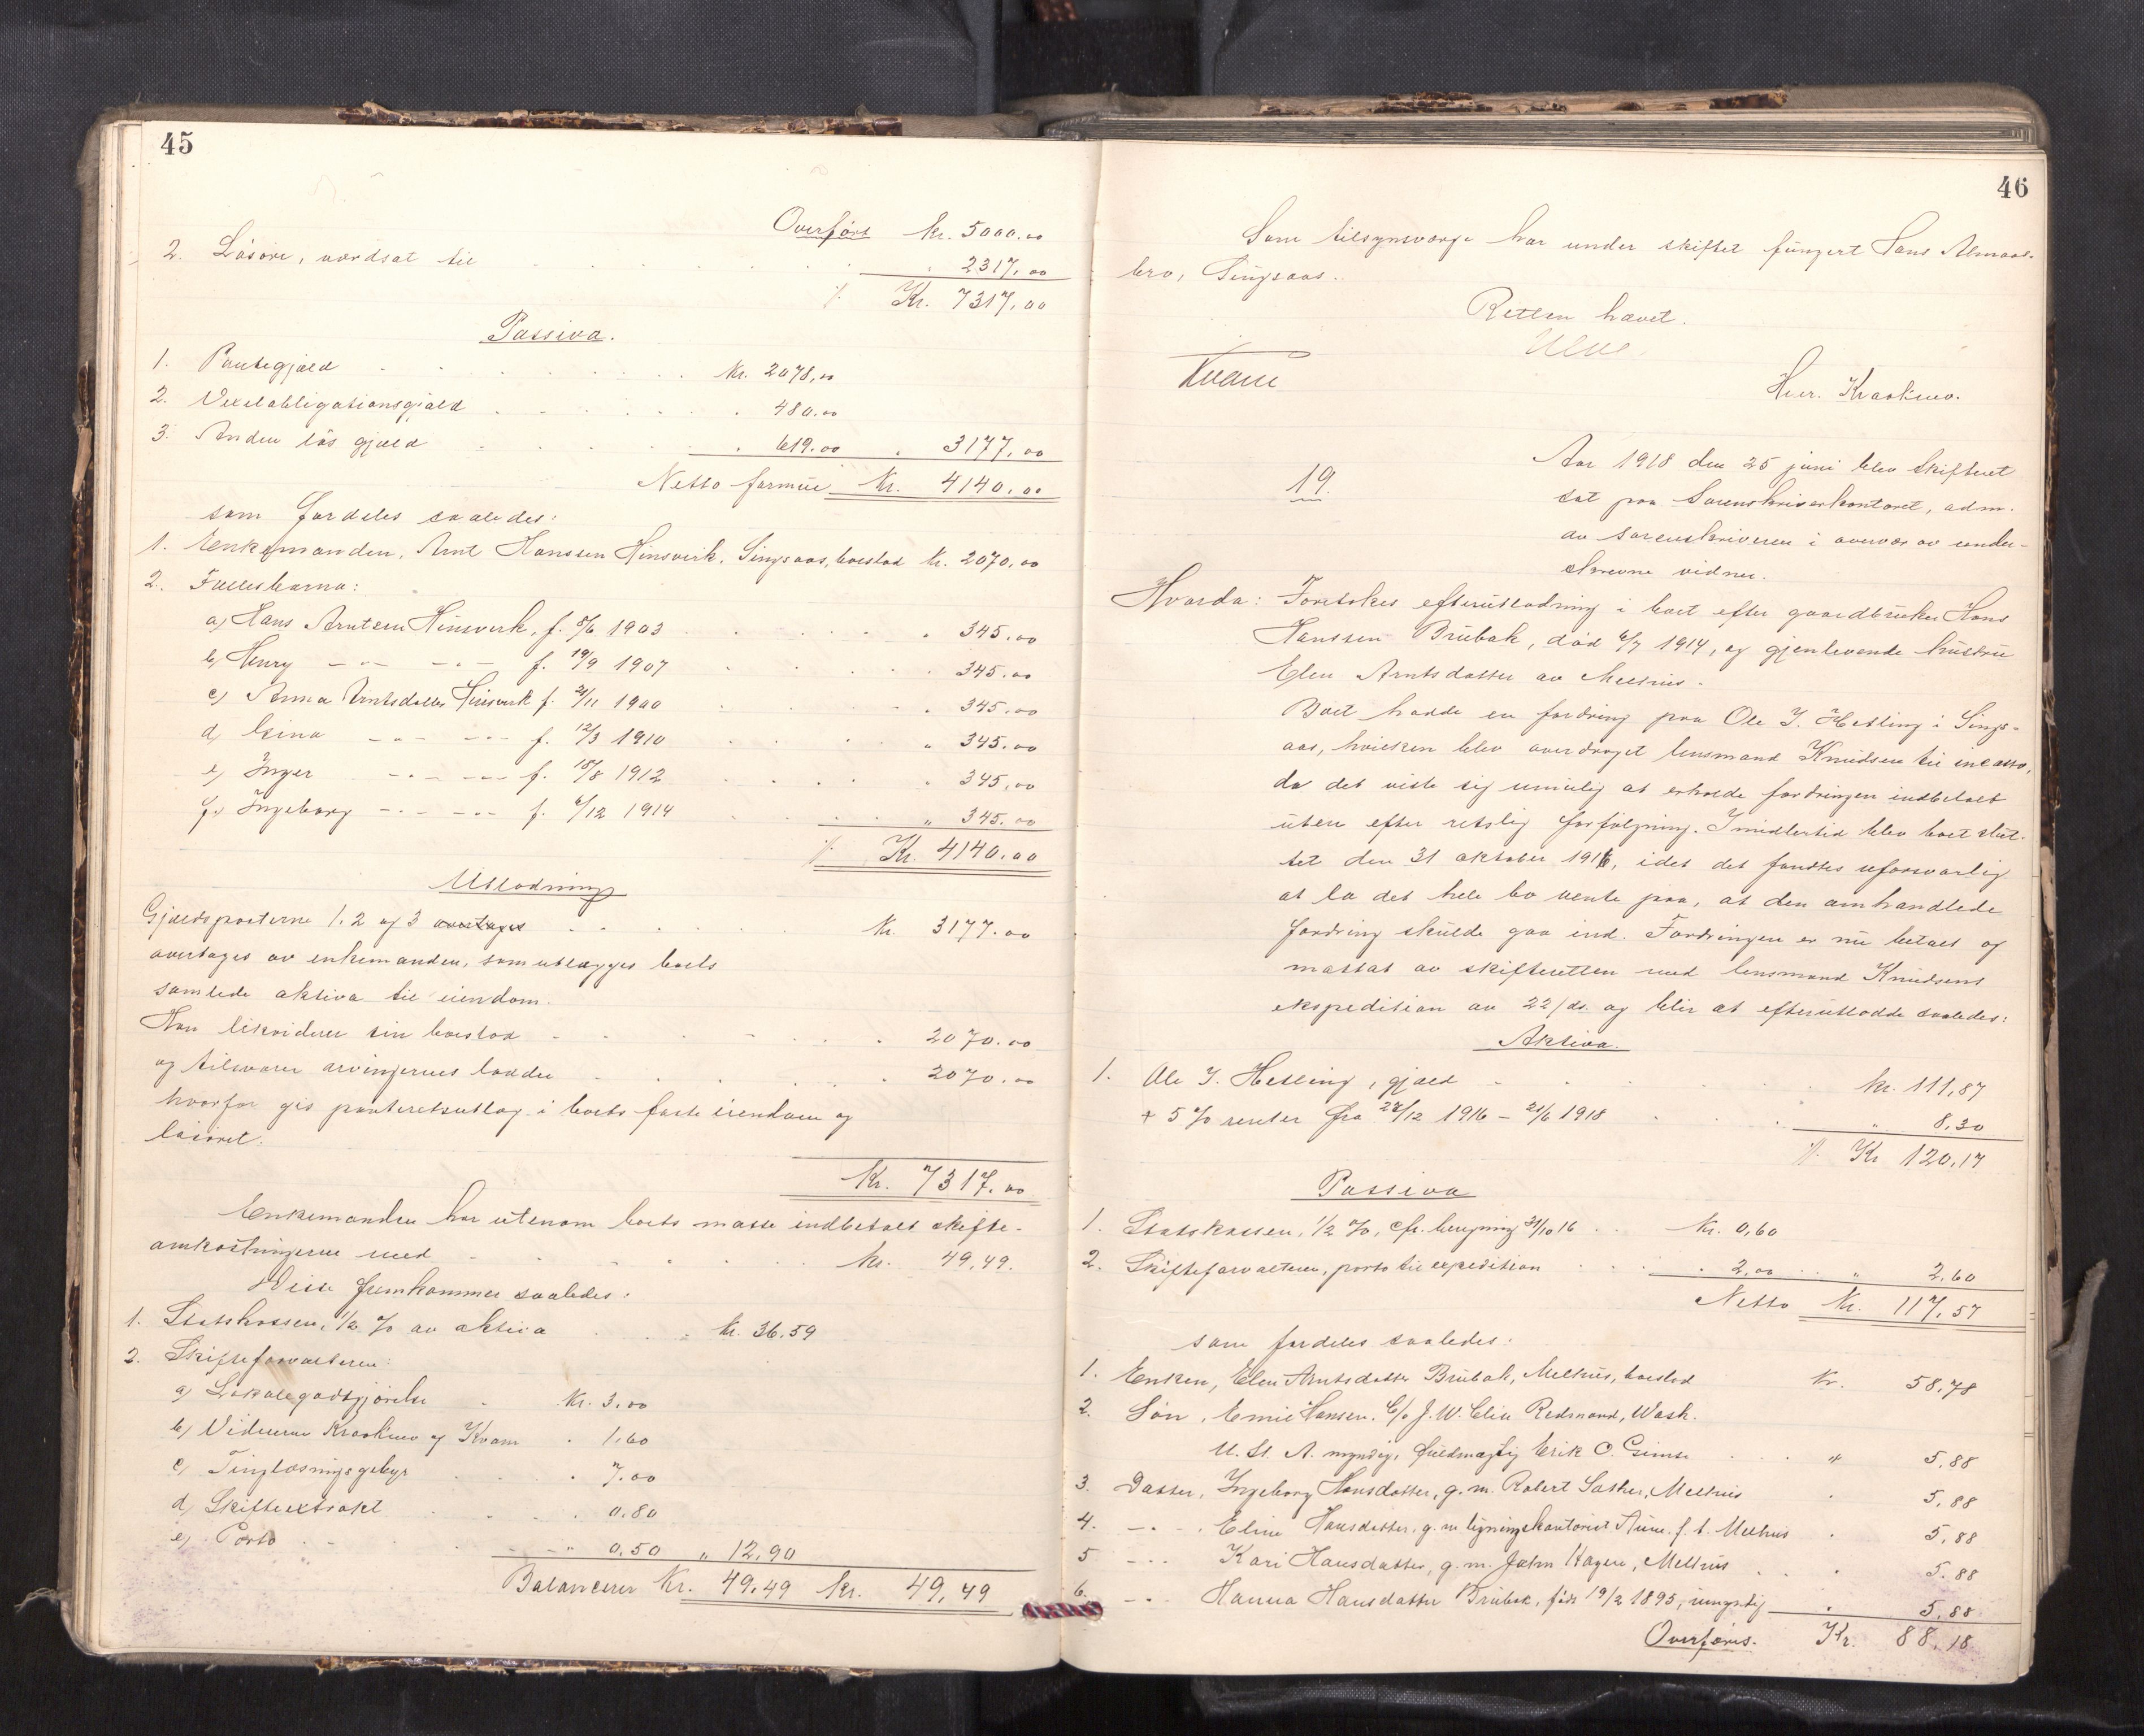 45
Overført kr. 5000.00
2. Løsøre, værdsat til . . . . . . . . . " 2317,00
/. Kr. 7317,00
Passiva.
1. Pantegjæld . . . . . . . . Kr. 2078,00
2. Vexelobligationsgjæld . . . . . . " 480.00
3. Anden løs gjæld . . . . . " 619.00 " 3177,00
Netto formue Kr. 4140,00
som fordeles saaledes:
1. Enkemanden, Arnt Hanssen Hinsverk, Singsaas, boeslod kr. 2070,00
2. Fællesbarna:
a) Hans Arntsen Hinsverk, f. 5/6 1903 . . . . " 345.00
b) Henry -"- -"- f. 19/9 1907 . . . . 345.00
c) Anna Arntsdatter Hinsverk f. 21/11 1900 . . . . " 345.00
d) Gina -"- -"- f. 12/3 1910 . . . . " 345.00
e) Inger -"- -"- f. 15/8 1912 . . . . " 345,00
f) Ingeborg -"- -"- f. 6/12 1914 . . . . " 345.00
/. Kr. 4140.00
Utlodning
Gjældsposterne 1, 2 og 3 overtages . . . . . Kr. 3177.00
overtages av enkemanden, som utlægges boets
samlede aktiva til eiendom.
Han likviderer sin boeslod . . . . . . 2070.00
og tilsvarer arvingernes lodder . . . . . 2070.00
hvorfor gis panteretsutlæg i boets faste eiendom og
løsøret.
Kr. 7317.00
Enkemanden har utenom boets masse indbetalt skifte-
omkostningerne med . . . . . . kr. 49,49.
Disse fremkommer saaledes:
1. Statskassen, 1/2 % av aktiva . . . kr. 36.59
2. Skifteforvalteren:
a) Lokalegodtgjørelse . Kr. 3.00
b) Vidnerne Kraakmo og Kvam . 1,60
c) Tinglæsningsgebyr . . . 7.00
d) Skifteextrakt . . . . 0.80
e) Porto . . . . " 0.50 " 12,90
Balancerer Kr. 49.49 kr. 49,49
46
Som tilsynsværge har under skiftet fungert Hans Almaas-
bro, Singsaas.
Retten hævet.
Kvam
Kraakmo.
19.
Aar 1918 den 25 juni blev skifteret
sat paa Sorenskriverkontoret, adm.
av sorenskriveren i overvær av under-
skrevne vidner.
Hvorda: Foretokes efterutlodning i boet efter gaardbruker Hans
Hanssen Brubak, død 6/7 1914, og gjenlevende hustru
Elen Arntsdatter av Melhus.
Boet hadde en fordring paa Ole J. Hetling i Sings-
aas, hvilken blev overdraget lensmand Knudsen til incasso,
da det viste sig umulig at erholde fordringen indbetalt
uten efter retslig forfølgning. Imidlertid blev boet slut-
tet den 31 oktober 1916, idet det fandtes uforsvarlig
at la det hele bo vente paa, at den omhandlede
fordring skulde gaa ind. Fordringen er nu betalt og
mottat av skifteretten med lensmand Knudsens
ekspedition av 22/ds. og blir at efterutlodde saaledes:
Aktiva.
1. Ole J. Hetling, gjæld . . . . . kr. 111,87
+ 5 % renter fra 28/12 1916 - 21/6 1918 . . . " 8.30
/. Kr 120,17
Passiva
1. Statskassen, 1/2 %, cfr. beregning 31/10 16 . . Kr. 0,60
2. Skifteforvalteren, porto til expedition . . . " 2,00 . . " 2,60
Netto Kr. 117,57
som fordeles saaledes:
1. Enken, Elen Arntsdatter Brubak, Melhus, boeslod Kr. 58,78
2. Søn, Emil Hansen, C/o J. W. Cline Redmond, Wash.
U. St. A. myndig, fuldmægtig Erik O. Gimse . . " 5,88
3. Datter, Ingeborg Hansdatter, g. m. Robert Sæther, Melhus . 5,88
4. -"- Eline Hansdatter, g. m. ligningskontorist Aune, f. t. Melhus . 5,88
5 -"- Kari Hansdatter, g. m. John Hagen, Melhus . . . 5.88
6. -"- Hanna Hansdatter Brubak, født 19/2 1895, umyndig . 5,88
Overføres. Kr. 88.18